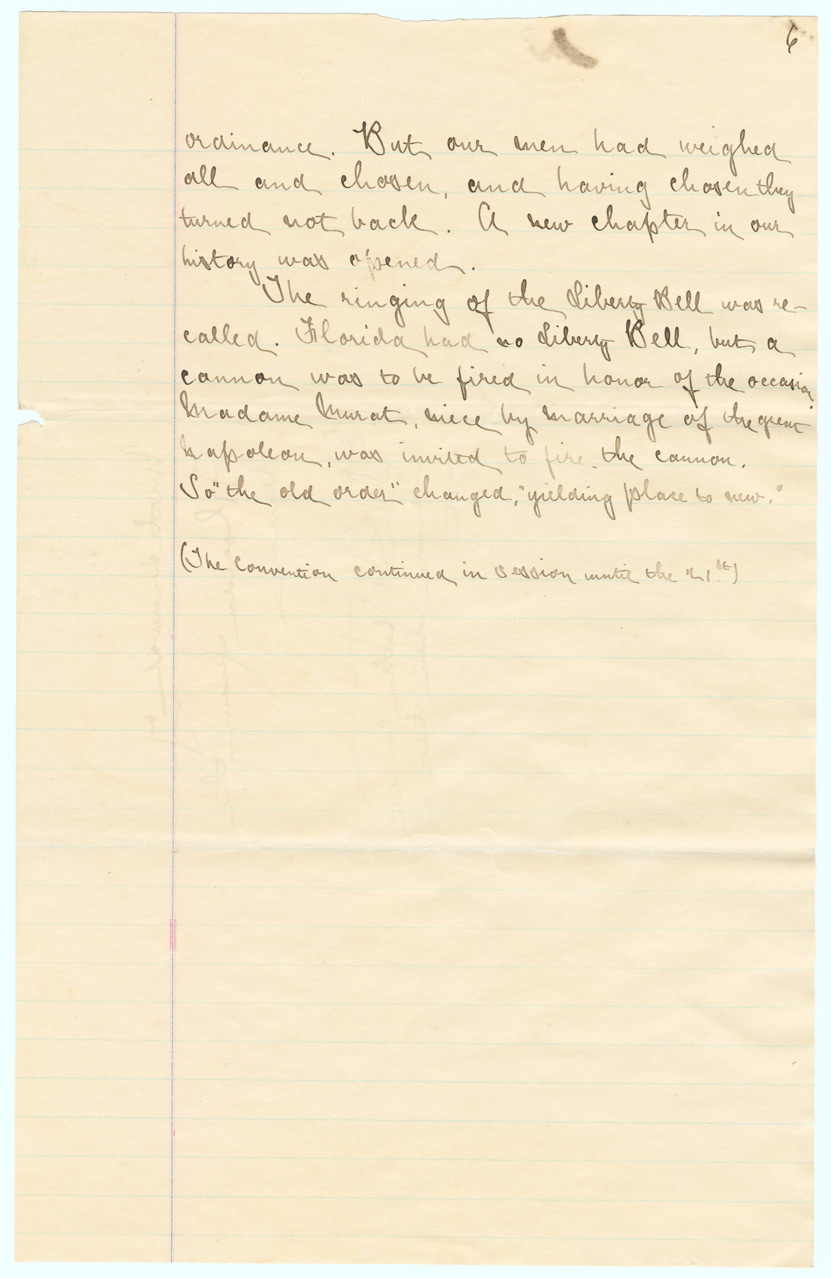 6
ordinance. But our men had weighed
all and chosen, and having chosen they
turned not back. A new chapter in our
history was opened.
The ringing of the Liberty Bell was re-
called. Florida had no Liberty Bell, but a
cannon was to be fired in honor of the occasion.
Madame Murat, niece by marriage of the great
Napoleon, was invited to fire the cannon.
So "the old order" changed, "yielding place to new."
(The Convention continued in session until the 21st)